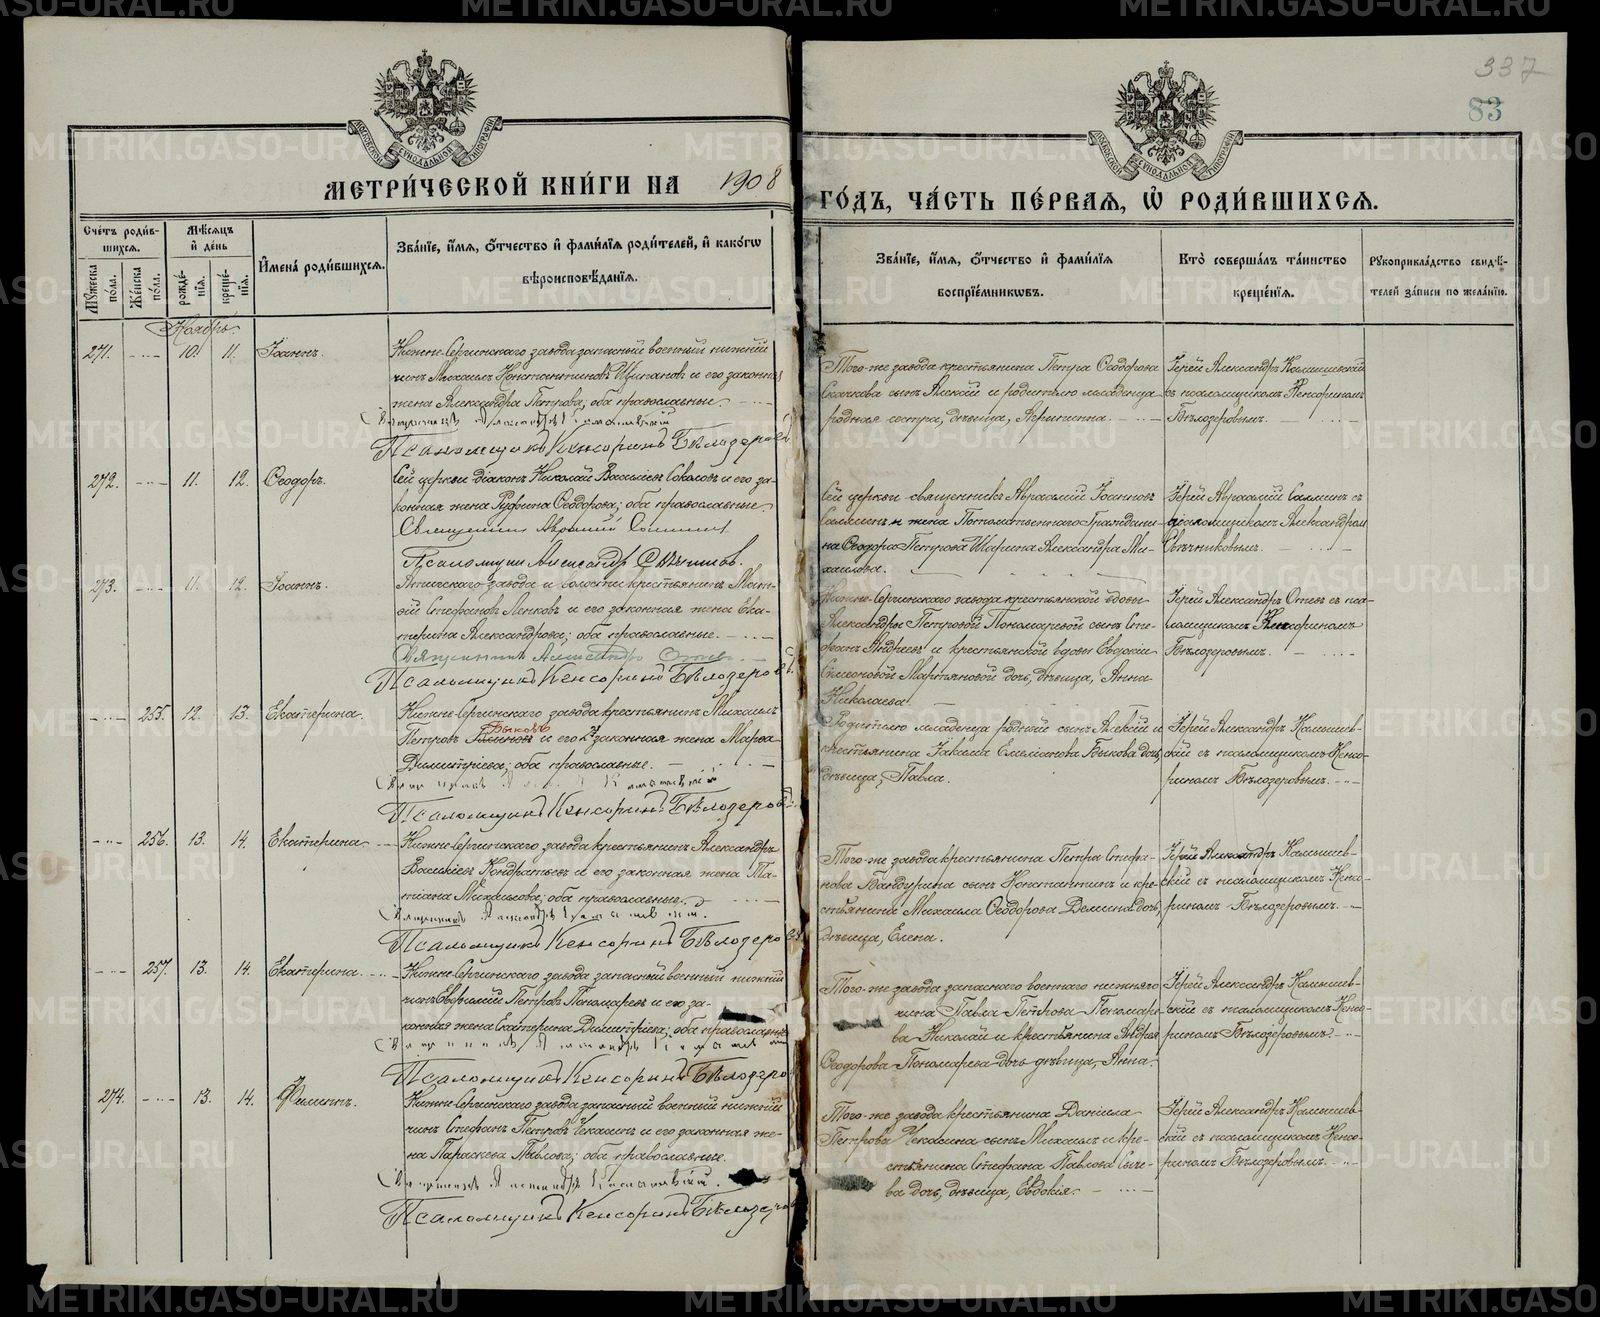 337
83
МОСКОВСКОЙ СѴНОДАЛЬНОЙ ТИПОГРАФІИ
МОСКОВСКОЙ СѴНОДАЛЬНОЙ ТИПОГРАФІИ
МЕТРИ́ЧЕСКОЙ КНИ́ГИ НА 1908 ГО́ДЪ, ЧА́СТЬ ПЕ́РВАЯ, Ѽ РОДИ́ВШИХСЯ.
Сче́тъ роди́вшихся.
Му́жеска по́ла.
Же́нска по́ла.
Мѣ́сяцъ и҆ де́нь
рожде́нїя.
креще́нїя.
И҆мена̀ роди́вшихся.
Зва́нїе, и҆́мя, ѻ҆́тчество и҆ фами́лїя роди́телей, и҆ како́гѡ вѣроисповѣ́данїя.
Зва́нїе, и҆́мя, ѻ҆́тчество и҆ фами́лїя воспрїе́мникѡвъ.
Кто̀ соверша́лъ та́инство креще́нїя.
Рукоприкла́дство свидѣ́телей за́писи по жела́нїю.
Ноябрь.
271.
10.
11.
Іоаннъ.
Нижне-Сергинскаго завода запасный военный нижній
чинъ Михаилъ Константиновъ Щипановъ и его законная
жена Александра Петрова; оба православные.
Псаломщикъ Кенсоринъ Бѣлозеровъ
Того-же завода крестьянина Петра Ѳеодорова
Скачкова сынъ Алексій и родителю младенца
родная сестра, дѣвица, Агрипина.
Іерей Александръ Камышевскій
съ псаломщикомъ Кенсориномъ
Бѣлозеровымъ.
272.
11.
12.
Ѳеодоръ.
Сей церкви діаконъ Николай Васильевъ Соколовъ и его за-
конная жена Руфина Ѳеодорова; оба православные.
Псаломщикъ Александръ Свѣчниковъ.
Сей церкви священникъ Авраамій Іоанновъ
Саламинъ и жена Потомственнаго Граждани-
на Ѳеодора Петрова Шарина Александра Ми-
хаилова.
Іерей Авраамій Саламинъ съ
псаломщикомъ Александромъ
Свѣчниковымъ.
273.
11.
12.
Іоаннъ.
Атигскаго завода и волости крестьянинъ Мат-
ѳій Стефановъ Лепковъ и его законная жена Ека-
терина Александрова; оба православные.
Священникъ Александръ Отевъ
Псаломщикъ Кенсоринъ Бѣлозеровъ
Нижне-Сергинскаго завода крестьянской вдовы
Александры Петровой Пономаревой сынъ Сте-
фанъ Андреевъ и крестьянской вдовы Евдокіи
Симеоновой Мартьяновой дочь, дѣвица, Анна
Николаева.
Іерей Александръ Отевъ съ пса-
ломщикомъ Кенсориномъ
Бѣлозеровымъ.
255.
12.
13.
Екатерина.
Нижне-Сергинскаго завода крестьянинъ Михаилъ
Быковъ
Петровъ и его 2я законная жена Марѳа
Димитріева; оба православные.
Псаломщикъ Кенсоринъ Бѣлозеровъ
Родителю младенца родный сынъ Алексій и
крестьянина Іакима Емельянова Быкова дочь,
дѣвица, Павла.
Іерей Александръ Камышев-
скій съ псаломщикомъ Кенсо-
риномъ Бѣлозеровымъ.
256.
13.
14.
Екатерина
Нижне-Сергинскаго завода крестьянинъ Александръ
Васильевъ Кондратьевъ и его законная жена Та-
тіана Михайлова; оба православные.
Псаломщикъ Кенсоринъ Бѣлозеровъ
Того-же завода крестьянина Петра Стефа-
нова Бандурина сынъ Константинъ и кре-
стьянина Михаила Ѳеодорова Демина дочь,
дѣвица, Елена.
Іерей Александръ Камышев-
скій съ псаломщикомъ Кенсо-
риномъ Бѣлозеровымъ.
257.
13.
14.
Екатерина.
Нижне-Сергинскаго завода запасный военный нижній
чинъ Евфимій Петровъ Пономаревъ и его за-
конная жена Екатерина Димитріева; оба православные
Псаломщикъ Кенсоринъ Бѣлозеро
Того-же завода запаснаго военнаго нижняго
чина Павла Петрова Пономаре-
ва Николай и крестьянина Андрея
Ѳеодорова Пономарева дочь дѣвица, Анна.
Іерей Александръ Камышев-
скій съ псаломщикомъ Кенсо-
риномъ Бѣлозеровымъ.
274.
13.
14.
Филиппъ.
Нижне-Сергинскаго завода запасный военный нижній
чинъ Стефанъ Петровъ Чекасинъ и его законная же-
на Параскева Павлова; оба православные.
Псаломщикъ Кенсоринъ Бѣлозеров
Того-же завода крестьянина Даніила
Петрова Чекасина сынъ Михаилъ и кре-
стьянина Стефана Павлова Сыче-
ва дочь, дѣвица, Евдокія.
Іерей Александръ Камышев-
скій съ псаломщикомъ Кенсо-
риномъ Бѣлозеровымъ.
METRIKI.GASO-URAL.RU